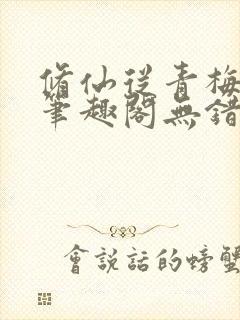 脩仙從青梅
筆趣閣無錯
會說話的螃蟹